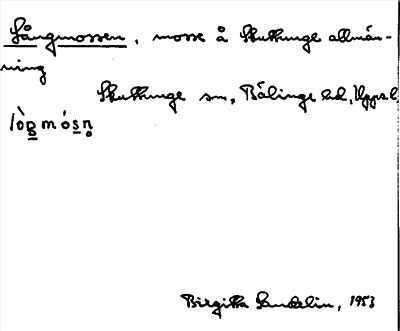 Långmossen, mosse å Skuttunge allmän-
ning
Skuttunge sn, Bälinge hd, Uppsl
lò̀ŋmósn̥
Birgitta Sandelin, 1953